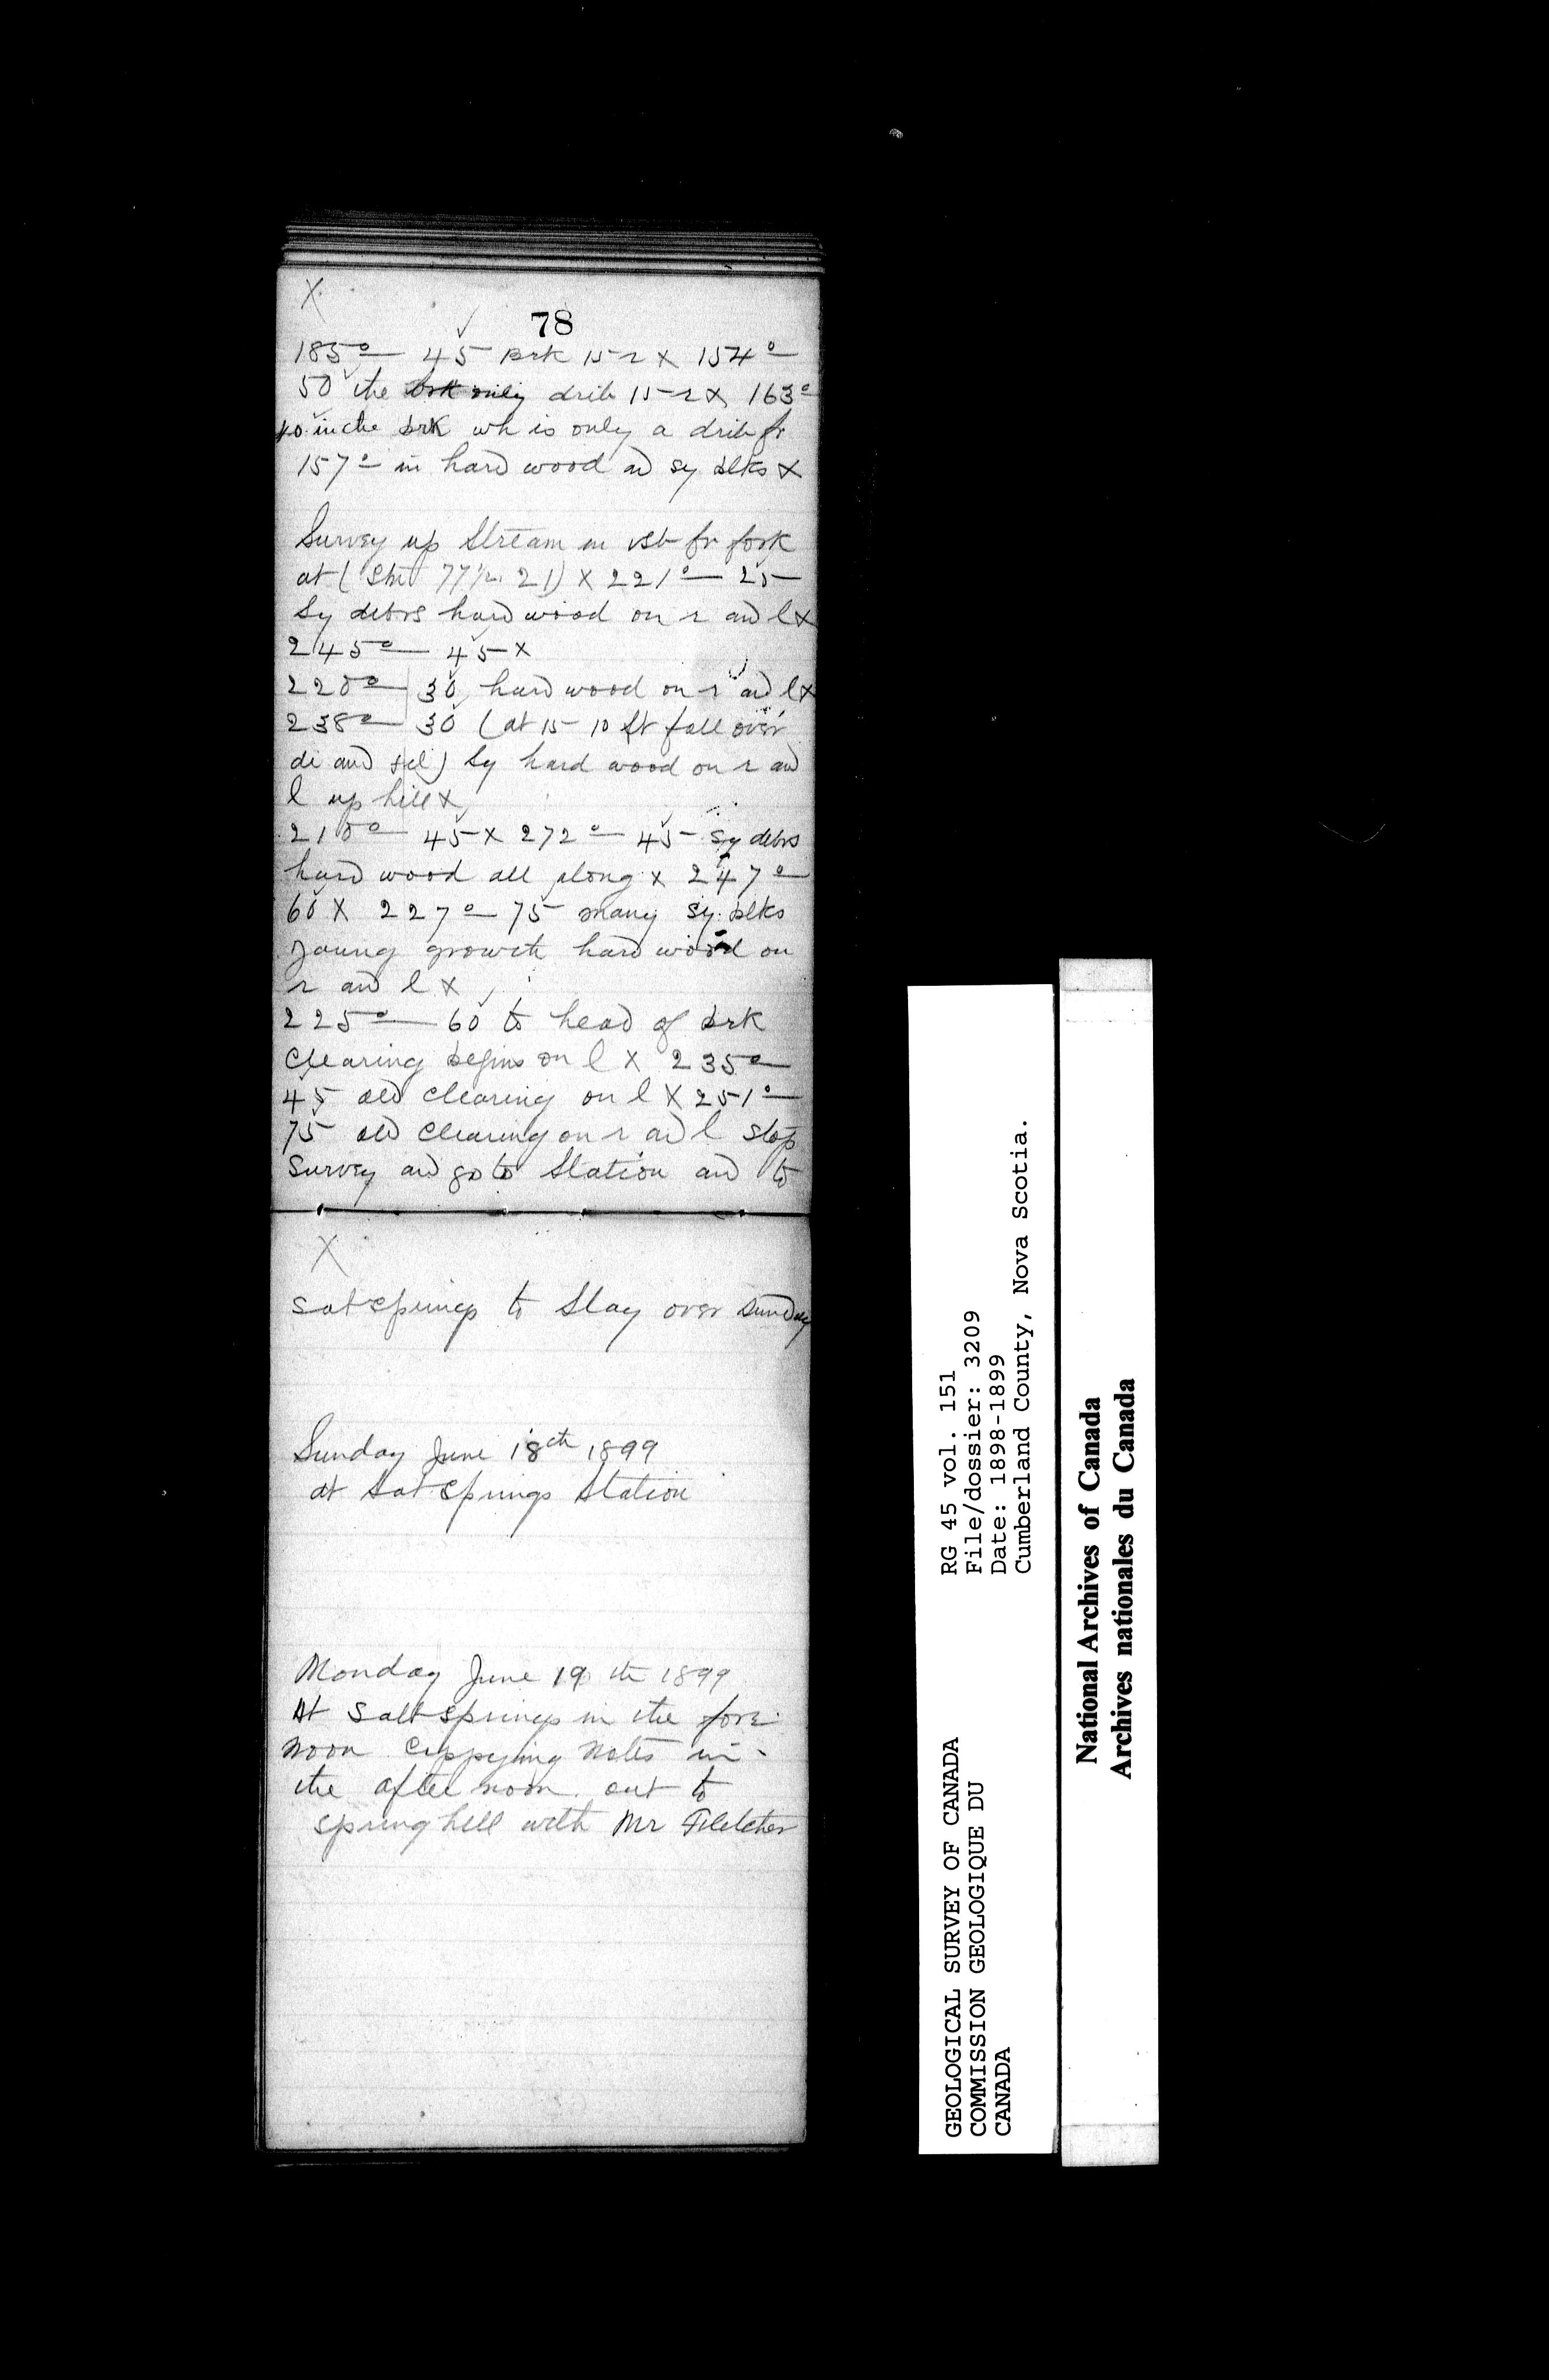 X
78
185° — 45 brk 15 r X 154° —
50 the brk only drib 15 r X 163° —
40 in the brk wh is only a drib fr
157° — in hard wood and sy blks X
Survey up Stream on fr fork
at (Stn 77½. 21) X 221° — 25
Sy debrs hard wood on r and l X
245° — 45 X
220° — 30 hard wood on r and l X
238° — 30 (at 15 10 ft fall over
di and fel) Sy hard wood on r and
l up hill X
210° — 45 X 272° — 45 sy debrs
hard wood all along X 247° —
60 X 227° — 75 many sy. blks
young growth hard wood on
r and l X
225° — 60 to head of brk
Clearing begins on l X 235° —
45 old clearing on l X 251° —
75 old Clearing on r and l stop
Survey and go to Station and to
X
Satsprings to Stay over Sunday
Sunday June 18th 1899
at Satsprings Station
Monday June 19th 1899
At Saltsprings in the fore
noon coppying notes in
the afternoon out to
springhill with Mr Fletcher
GEOLOGICAL SURVEY OF CANADA
COMMISSION GEOLOGIQUE DU
CANADA
RG 45 vol. 151
File/dossier: 3209
Date: 1898-1899
Cumberland County, Nova Scotia.
National Archives of Canada
Archives nationales du Canada